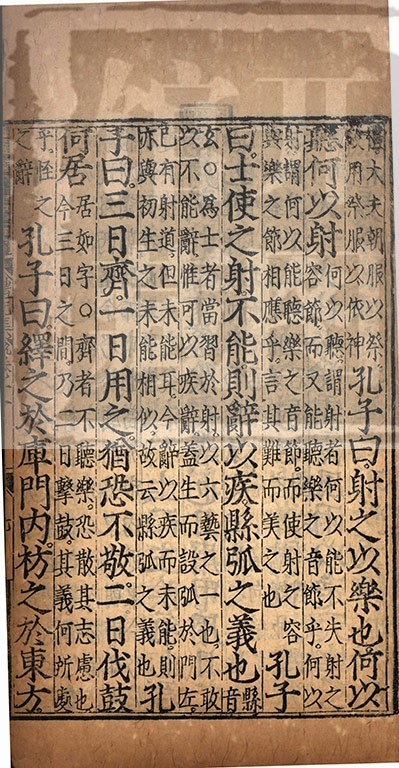 禮大夫朝服以祭。
故用祭服以依神
孔子曰。射之以樂也。何以
聽。何以射
何以聽。謂射者何以能不失射之
容節。而又能聽樂之音節乎。何以
射。謂何以能聽樂之音節。而使射之容
與樂之節相應乎。言其難而美之也
孔子
曰。士使之射。不能則辭以疾。縣弧之義也
縣
音
玄○爲士者當習於射。以六藝之一也。不敢
以不能辭。惟可以疾辭。蓋生而設弧於門左。
已有射道。但未能耳。今辭以疾而未能。則
亦與初生之未能相似。故云縣弧之義也
孔
子曰。三日齊。一日用之。猶恐不敬。二日伐鼓
何居
居如字○齊者不聽樂。恐散其志慮也
今三日之間。乃二日擊鼓。其義何所處
乎。怪之
之辭
孔子曰。繹之於庫門內。枋之於東方。